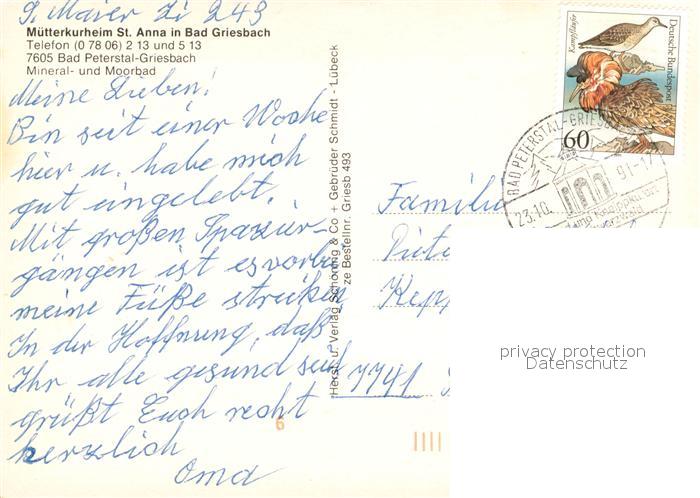 G. Maier Zi 243
Mütterkurheim St. Anna in Bad Griesbach
Telefon (0 78 06) 2 13 und 5 13
7605 Bad Peterstal-Griesbach
Mineral- und Moorbad
Meine Lieben!
Bin seit einer Woche
hier u. habe mich
gut eingelebt.
Mit großen Spazier-
gängen ist es vorbei
meine Füße streiken
In der Hoffnung, daß
Ihr alle gesund seid
grüßt Euch recht
herzlich
Oma
Herst. u. Verlag Schöning & Co + Gebrüder Schmidt - Lübeck
ze Bestellnr. Griesb 493
Kampfläufer
Deutsche Bundespost
60
BAD PETERSTAL-GRIESB
23.10. 91-17
Familie
Kepp
7741
6
privacy protection
Datenschutz